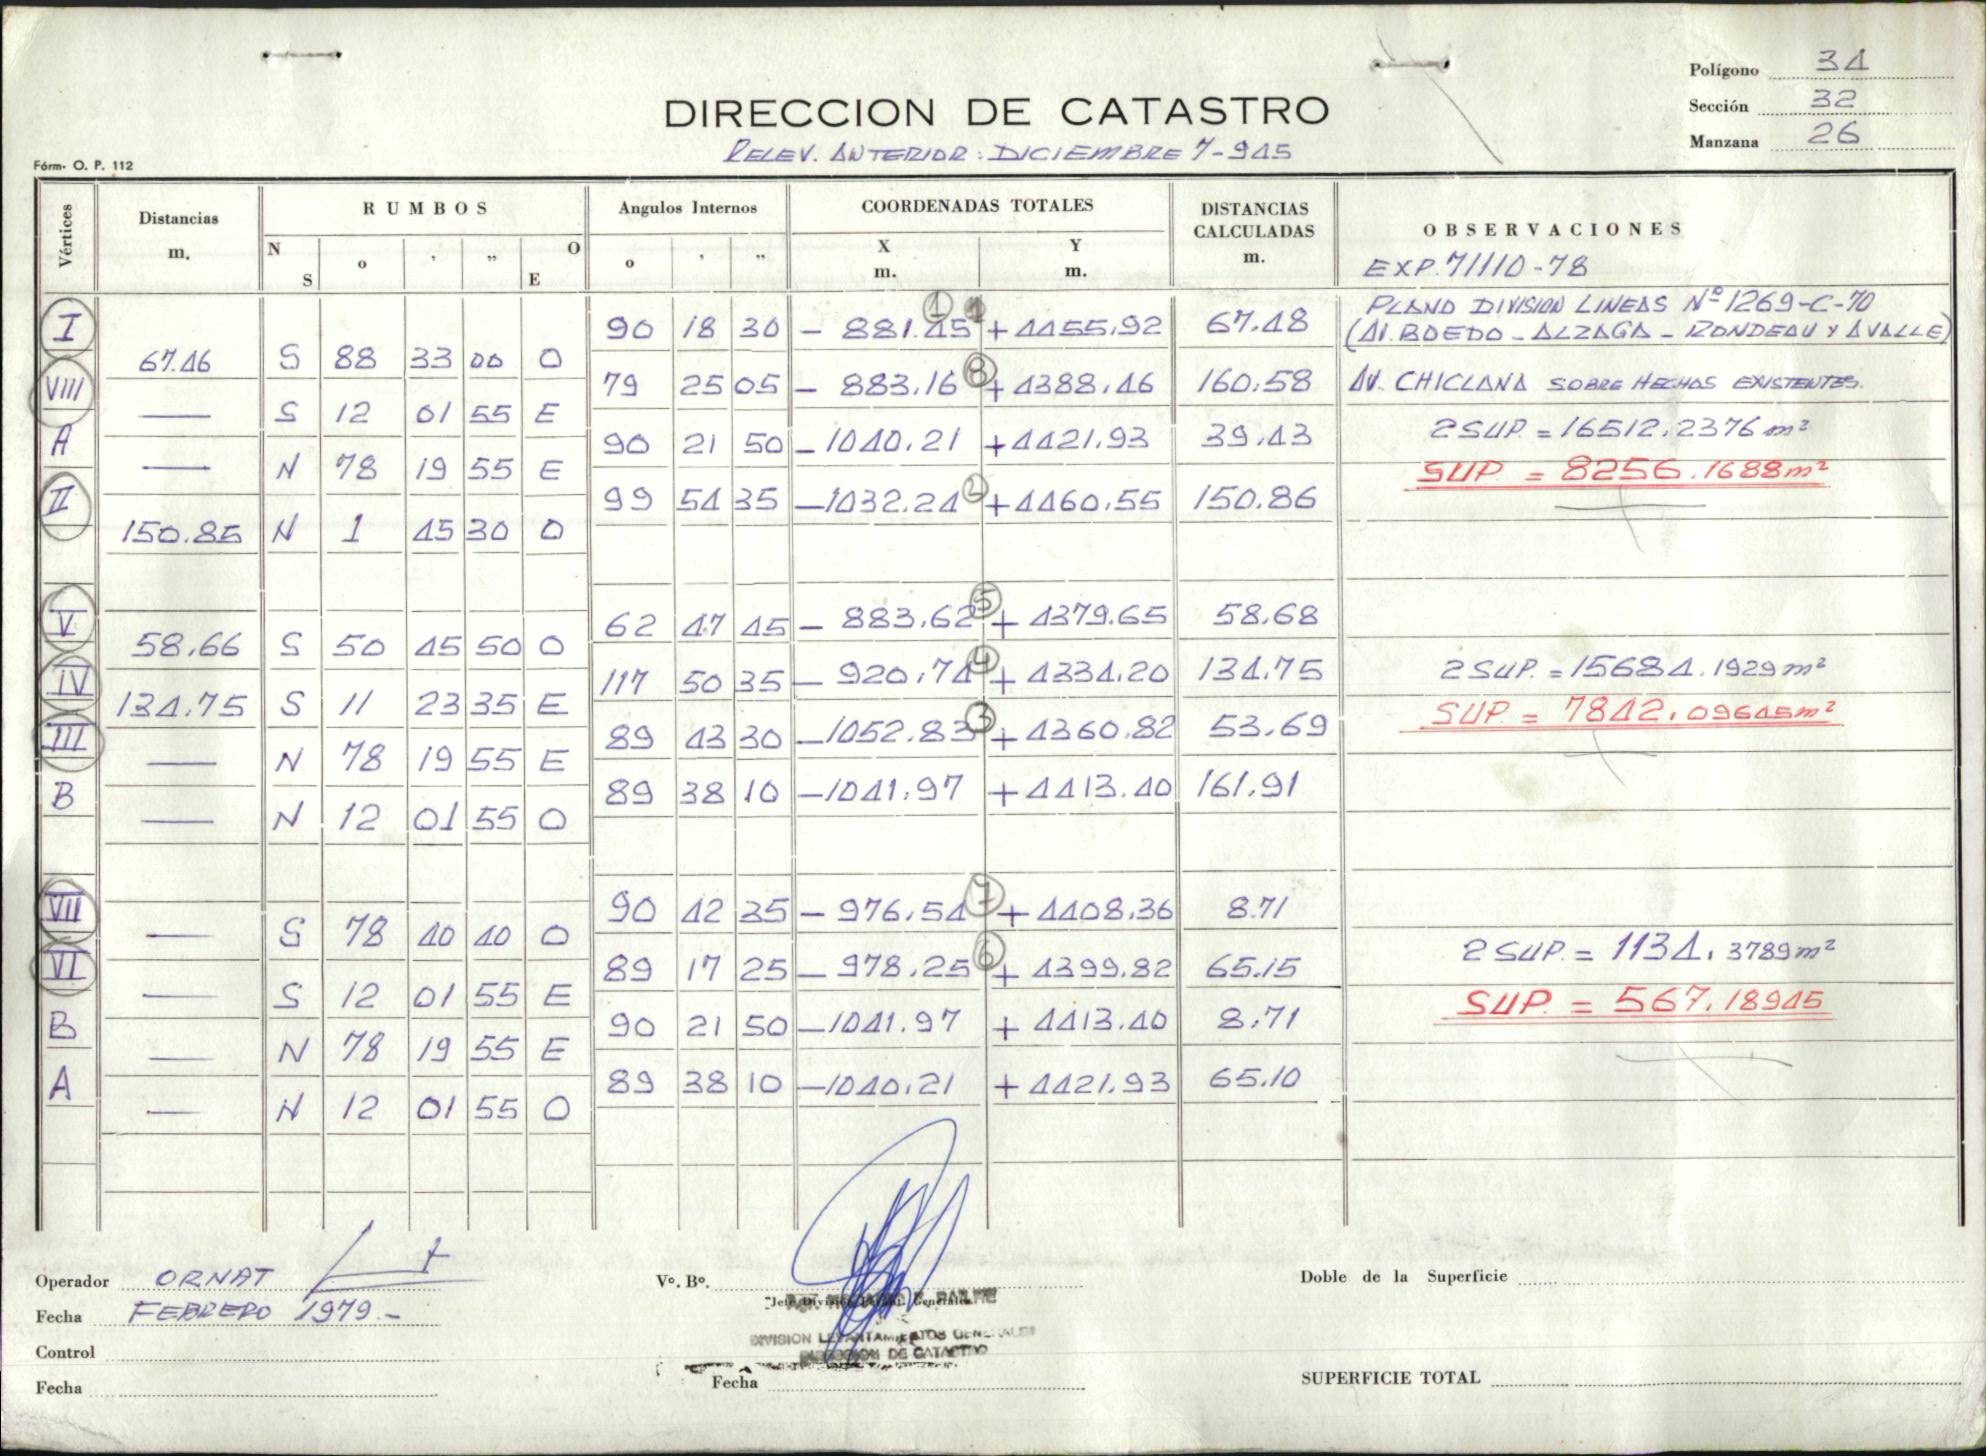 Polígono 34
DIRECCION DE CATASTRO
Sección 32
RELEV. ANTERIOR: DICIEMBRE 7-945
Manzana 26
Fórm. O. P. 112
Vértices Distancias m. RUMBOS N S o ' " O E Angulos Internos o ' " COORDENADAS TOTALES X m. Y m. DISTANCIAS CALCULADAS m. OBSERVACIONES
EXP. 71110-78
PLANO DIVISION LINEAS Nº 1269-C-70
I 90 18 30 - 881.45 1 + 4455.92 67.48 (AV. BOEDO - ALZAGA - RONDEAU Y AVALLE)
67.46 S 88 33 00 O
VIII 79 25 05 - 883.16 8 + 4388.46 160.58 AV. CHICLANA SOBRE HECHOS EXISTENTES.
— S 12 01 55 E
A 90 21 50 - 1040.21 + 4421.93 39.43 2 SUP. = 16512.2376 m²
— N 78 19 55 E
SUP = 8256.1688 m²
II 99 54 35 - 1032.24 2 + 4460.55 150.86
150.85 N 1 45 30 O
V 62 47 45 - 883.62 5 + 4379.65 58.68
58.66 S 50 45 50 O
IV 117 50 35 - 920.74 4 + 4334.20 134.75 2 SUP. = 15684.1929 m²
134.75 S 11 23 35 E
SUP. = 7842.09645 m²
III 89 43 30 - 1052.83 3 + 4360.82 53.69
— N 78 19 55 E
B 89 38 10 - 1041.97 + 4413.40 161.91
— N 12 01 55 O
VII 90 42 35 - 976.54 7 + 4408.36 8.71
— S 78 40 40 O
2 SUP. = 1134.3789 m²
VI 89 17 25 - 978.25 6 + 4399.82 65.15
— S 12 01 55 E
SUP. = 567.18945
B 90 21 50 - 1041.97 + 4413.40 8.71
— N 78 19 55 E
A 89 38 10 - 1040.21 + 4421.93 65.10
— N 12 01 55 O
Operador ORNAT
Vº. Bº.
Doble de la Superficie
Fecha FEBRERO 1979.-
DIVISION LEVANTAMIENTOS GENERALES
Control
DIRECCION DE CATASTRO
Fecha
Fecha
SUPERFICIE TOTAL